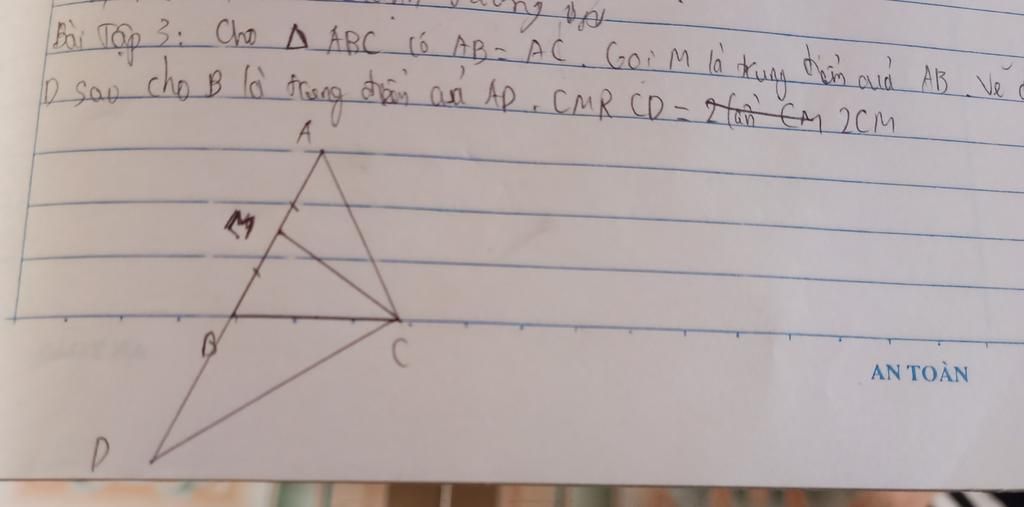 Bài Tập 3: Cho Δ ABC có AB = AC. Gọi M là trung điểm quả AB. Vẽ
D sao cho B là trung điểm quả AD. CMR CD = 2CM
A
M
B
C
AN TOÀN
D